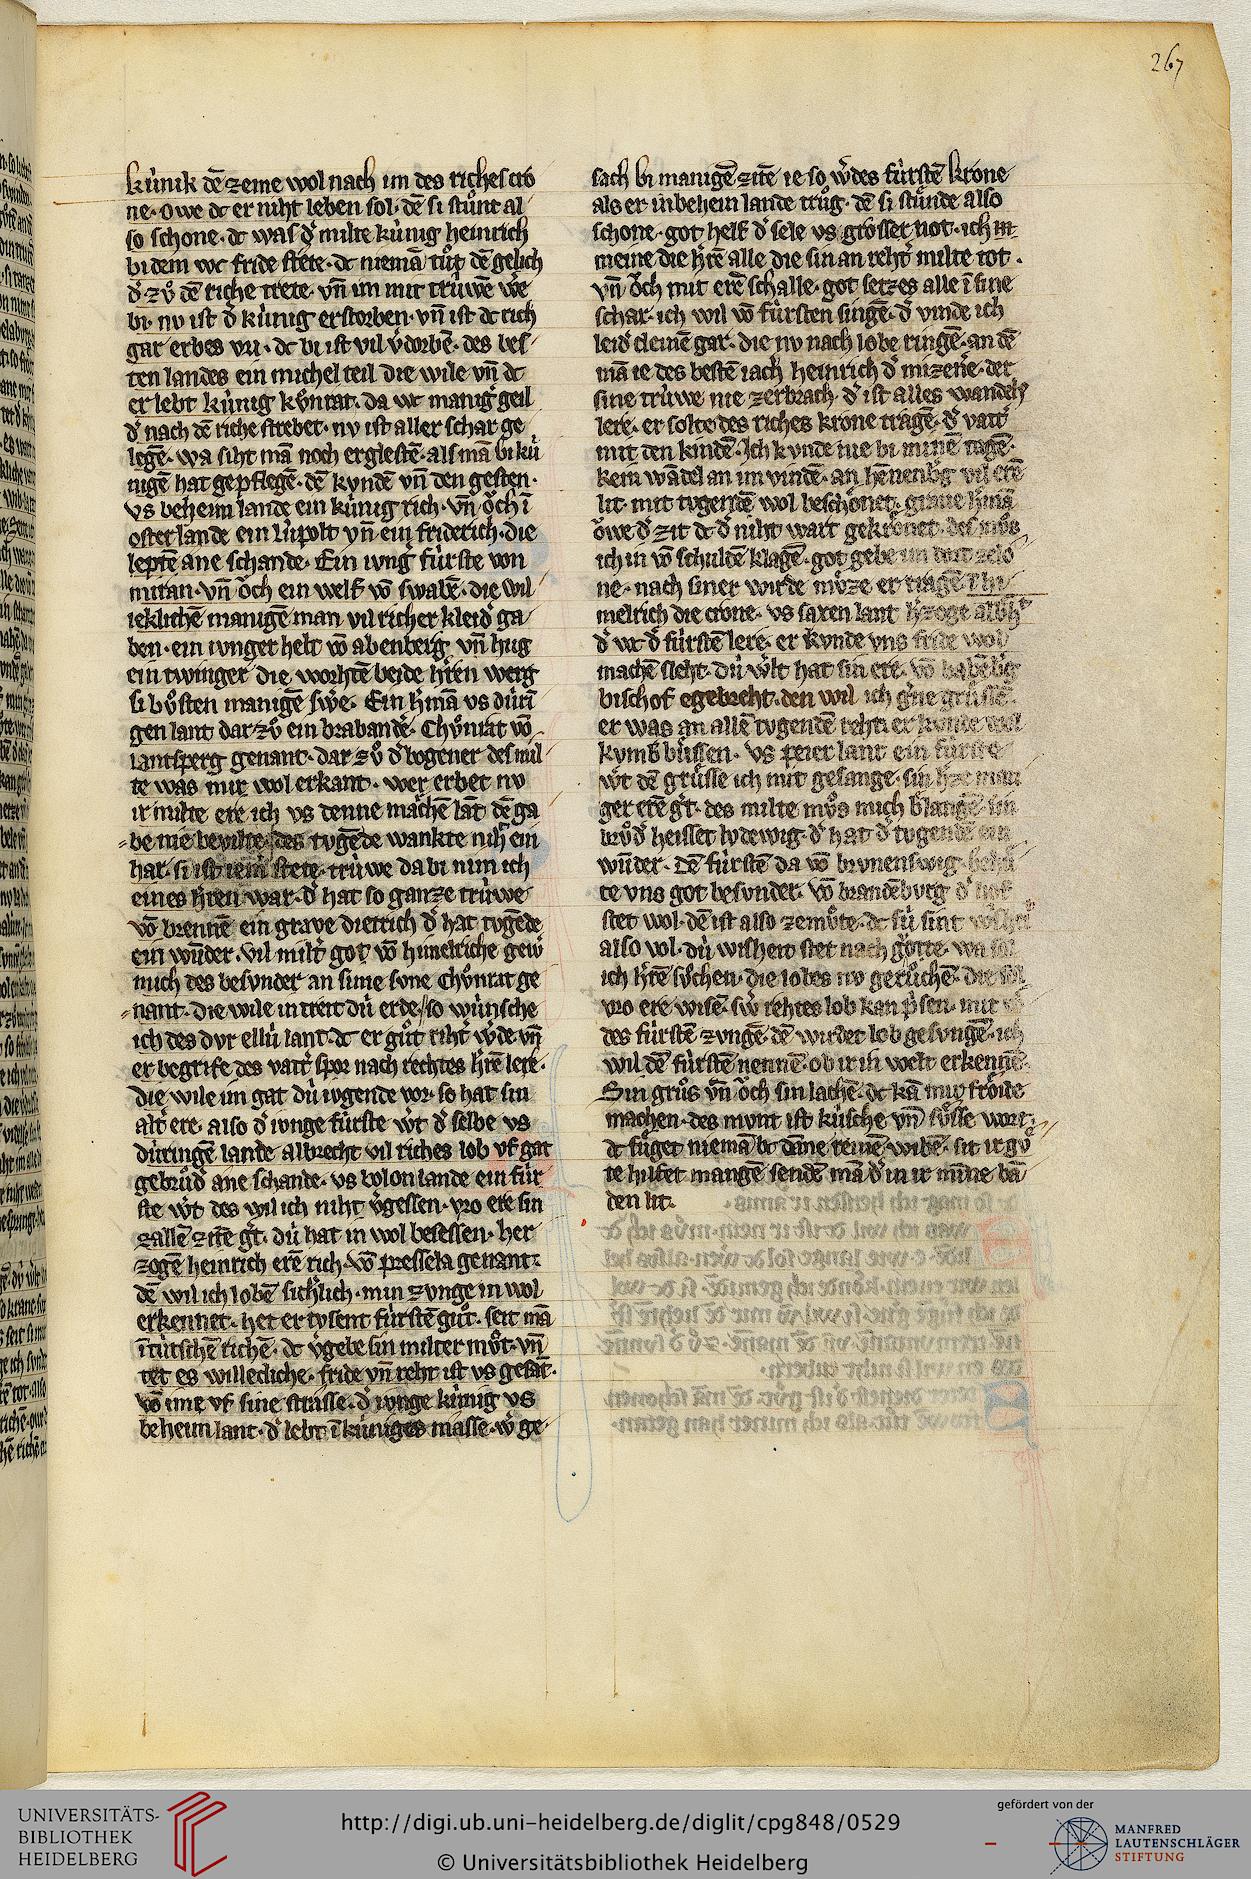 267
kúnik dē zeme wol nach im des riches cro
ne. owe dc er niht leben sol. dē si stůnt al
so schone. dc was d̓ milte kúnig heinrich
bi dem wc fride stete. dc niemā tůt dē gelich
d̓ zů dē riche trete. vn̄ im mit trúwē w̓e
bi. nv ist d̓ kúnig erstorben. vn̄ ist dc rich
gar erbes vri. dc bi ist vil v̓dorbē. des bes/
ten landes ein michel teil die wile vn̄ dc
er lebt kúnig kůnrat. da wc manig̓ geil
d̓ nach dē riche strebet. nv ist aller schar ge
legē. wa siht mā noch erglestē. als mā bi kú
nigē hat gepflegē. dē kvndē vn̄ den gesten.
vs beheim lande ein kúnig rich. vn̄ ǒch ī
osterlande ein lúpolt vn̄ ein friderich. die
leptē ane schande. Ein ivng̓ fúrste von
miran. vn̄ ǒch ein welf vō swabē. die wil
ieklichē manigē man vil richer kleid̓ ga/
ben. ein ivnger helt vō abenberg vn̄ hug
ein twinger die worhtē beide h̓ren werg
si bůsten manigē sw̓e. Ein h̓mā vs dúrī
gen lant dar zů ein braband̓e. Chůnrat vō
lantsperg genant. dar zů d̓ bogener des mil
te was mir wol erkant. wer erbet nv
ir milte ere ich vs denne machē lāt dē ga
be nie bevilte. des tvgēde wankte niht ein
har. si ist iem̄ stete. trúwe da bi nim ich
eines h̓ren war. d̓ hat so ganze trúwe
vō brennē ein grave dietrich d̓ hat tvgēde
ein wūder. vil milt̓ got vō himelriche gew̓
mich des besvnder an sime sone Chůnrat ge
nant. die wile in treit dú erde/ so wúnsche
ich des dvr ellú lant. dc er gůt riht̓ w̓de vn̄
er begrife des vatt̓ spor nach rechtes h̓rē lere.
die wile im gat dú ivgende vor. so hat sin
alt̓ ere. also d̓ ivnge fúrste w̓t d̓ selbe vs
dúringē lande albrecht vil riches lob vf gat
gebrůd̓ ane schande. vs bolon lande ein fúr
ste w̓t des wil ich niht v̓gessen. vro ere sin
zallē zitē g̓t. dú hat in wol besessen. her
zogē heinrich erē rich. vō pressela genant.
dē wil ich lobē sich̓lich. min zvnge in wol
erkennet. het er tvsent fúrstē gůt. seit mā
ī tútschē richē. dc v̓gebe sin milter můt. vn̄
tet es willecliche. fride vn̄ reht ist vs gesāt.
vō ime vf sine strasse. d̓ ivnge kúnig vs
beheim lant. d̓ lebt ī kúniges masse. w̓ ge/
sach bi manigē zitē ie so w̓des fúrstē krone
als er in behein lande trůg. dē si stůnde also
schone. got helf d̓ sele vs grosser not. ich m
meine die h̓re alle die sin an reht̓ milte tot.
vn̄ ǒch mit erē schalle. got setzes alle ī sine
schar. ich wil vō fúrsten singē. d̓ vinde ich
leid̓ cleinē gar. die nv nach lobe ringē. an dē
mā ie des bestē iach heinrich d̓ mizen̓e. der
sine trúwe nie zerbrach. d̓ ist alles wandels
lere. er solte des riches krone tragē. d̓ vatt̓
mit den kindē. Ich kvnde nie bi minē tagē.
kein wādel an im vindē. an hēnenb̓g vil erē
lit. mit tvgendē wol beschōnet. grave h̓mā
ǒwe d̓ zit dc d̓ niht wart gekrōnet. des můs
ich in vō schuldē klagē. got gebe im dort zelo
ne. nach siner wirde můze er tragē ī hi/
melrich die crone. vs saxen lant h̓zoge alb̓ht
d̓ wc d̓ fúrstē lere. er kvnde vns fride wol
machē sleht. dú w̓lt hat sin ere. vō babēb̓g
bischof egebreht. den wil ich g̓ne grússē.
er was an allē tvgendē reht. er kvnde wol
kvmb̓ bússen. vs peier lant ein fúrste
w̓t dē grússe ich mit gesange. sin h̓ze man
ger erē g̓t. des milte můs mich b̓langē. sin
brůd̓ heisset lvdewig. d̓ hat d̓ tvgendē ein
wūder. dē fúrstē da vō brvneswig. behů
te vns got besvnder. vō brandēbvrg d̓ hof
stet wol. dē ist also zemůte. dc sú sint
also wol. dú wisheit stet nach gǒtte. wa sol
ich h̓rē sůchen. die lobes nv gerůchē.
vro ere wisē. sw̓ rehtes lob kan p̓sen. mit
des fúrstē zvngē. dē wirdet lob gesvngē. ich
wil dē fúrstē nennē. ob ir in welt erkennē.
Sin grůs vn̄ ǒch sin lachē. dc kā mir frǒide
machen. des mvnt ist kúsche vn̄ sůsse wort.
dc fůget niemā bc dāne reinē wibē. sit ir gů
te hilfet mangē sendē mā d̓ in ir mīne bā
den lit.
UNIVERSITÄTS-
BIBLIOTHEK
HEIDELBERG
http://digi.ub.uni-heidelberg.de/diglit/cpg848/0529
© Universitätsbibliothek Heidelberg
gefördert von der
MANFRED
LAUTENSCHLÄGER
STIFTUNG